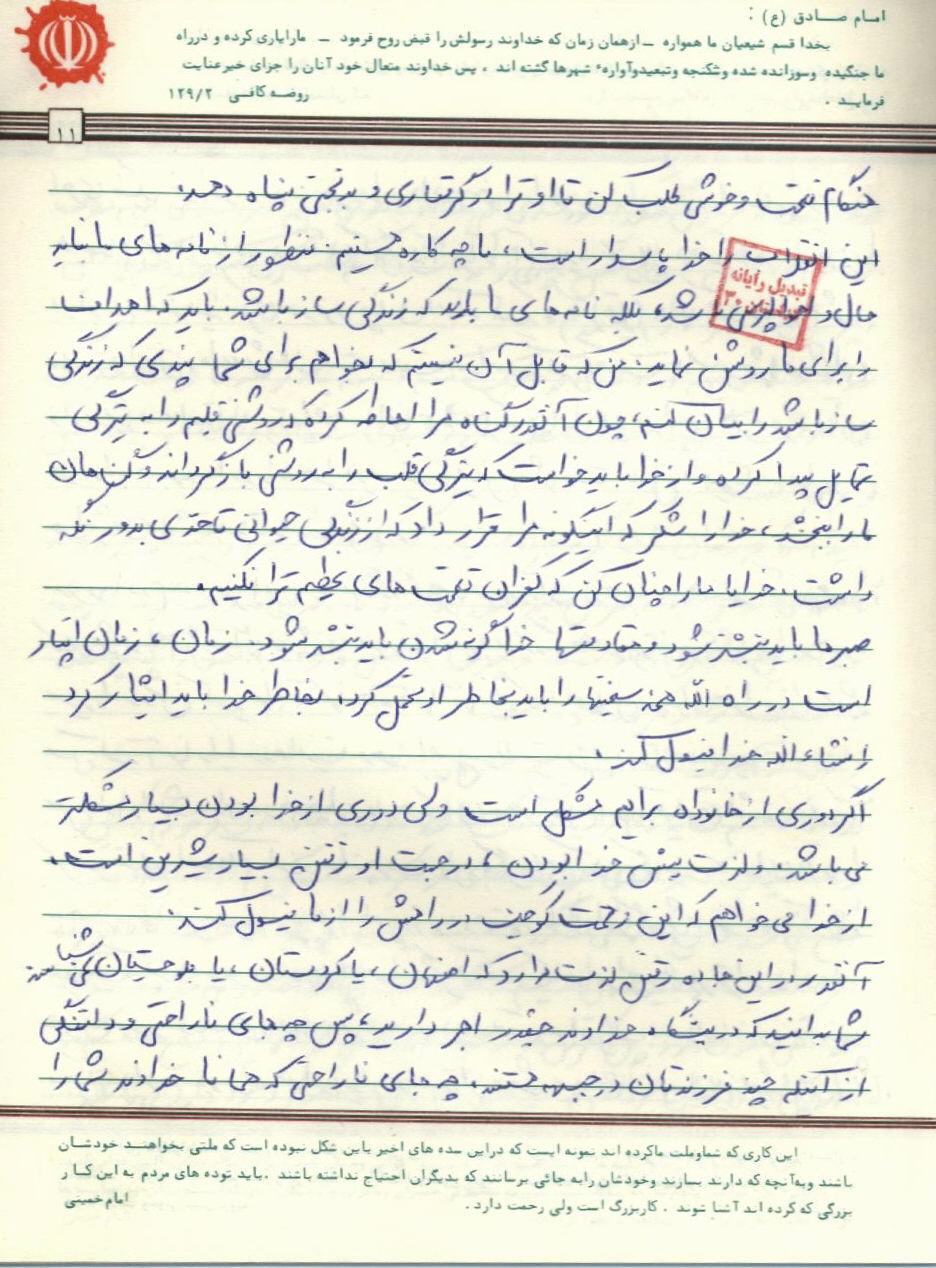 امام صادق (ع) :
بخدا قسم شیعیان ما همواره – ازهمان زمان که خداوند رسولش را قبض روح فرمود – مارایاری کرده و درراه
ما جنگیده وسوزانده شده وشکنجه وتبعیدوآواره شهرها گشته اند ، پس خداوند متعال خود آنان را جزای خیرعنایت
فرمایند .
روضه کافی ۱۲۹/۲
۱۱
هنگام نعمت و خوشی طلب کن تا او ترا از گرفتاری و بدبختی پناه دهد.
این انقلاب را خدا پاسدار است، ما چه کاره هستیم. منظور از نامه‌های ما نباید
تبدیل رایانه
حال و احوالپرسی باشد، بلکه نامه‌های ما باید که زندگی ساز باشد. باید که اهداف
را برای ما روشن نماید. من که قابل آن نیستم که بخواهم برای شما پندی که زندگی
ساز باشد را بیان کنم، چون آنقدر گناه مرا احاطه کرده که روشنی قلبم را به تیرگی
تمایل پیدا کرده و از خدا باید خواست که تیرگی قلب را به روشنی بازگرداند و گناهان
ما را ببخشد، خدا را شکر که اینگونه مرا قرار داد که از زندگی حیوانی تا حدی بدور نگه
داشت. خدایا ما را چنان کن که کفران نعمت‌های عظیم ترا نکنیم.
صبر ما باید بیشتر شود و مقاومتها خداگونه شدن باید بیشتر شود. زمان، زمان ایثار
است در راه الله همه سختیها را باید بخاطر او تحمل کرد. بخاطر خدا باید ایثار کرد
انشاءالله خدا قبول کند.
اگر دوری از خانواده برایم مشکل است ولی دوری از خدا بودن بسیار مشکلتر
می‌باشد. و لذت پیش خدا بودن، در جهت او رفتن بسیار شیرین است.
از خدا می‌خواهم که این زحمت کوچک در راهش را از ما قبول کند.
آنقدر در این جاده رفتن لذت دارد که اصفهان، یا کردستان، یا بلوچستان نمی‌شناسد
شما بدانید که در پیشگاه خداوند چقدر اجر دارید، پس چه جای ناراحتی و دلتنگی
از اینکه چند فرزندتان در جبهه هستند. چه جای ناراحتی که همانا خداوند شما را
این کاری که شماوملت ماکرده اند نمونه ایست که دراین سده های اخیر باین شکل نبوده است که ملتی بخواهند خودشان
باشند وبه آنچه که دارند بسازند وخودشان رابه جائی برسانند که بدیگران احتیاج نداشته باشند .باید توده های مردم به این کار
بزرگی که کرده اند آشنا شوند . کاربزرگ است ولی رحمت دارد .
امام خمینی